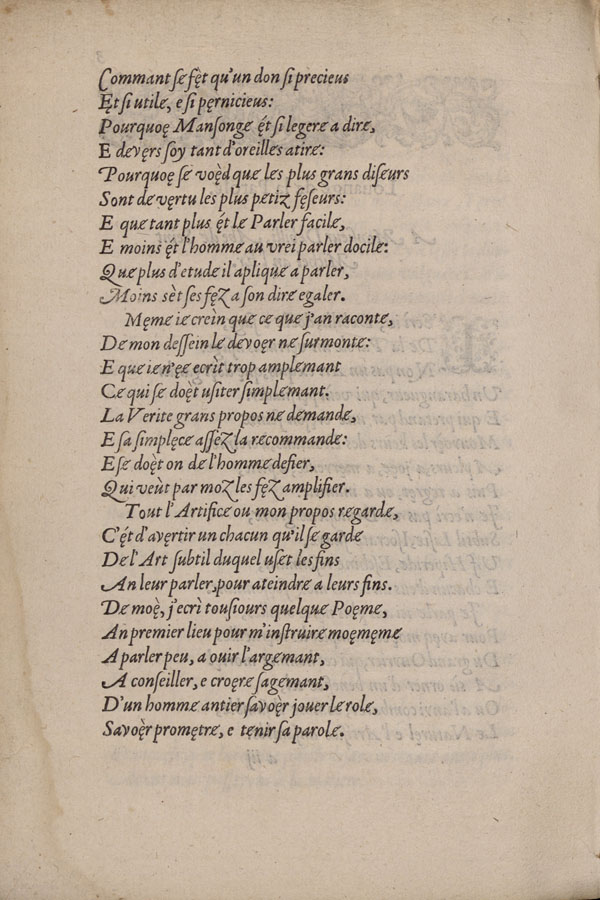 Commant ſe fęt qu'un don ſi precieus
Ęt ſi utile, e ſi pęrnicieus:
Pourquoę Manſonge ę́t ſi legere a dire,
E devęrs ſoy tant d'oreilles atire:
Pourquoę ſe voęd que les plus grans diſeurs
Sont de vęrtu les plus petiz feſeurs:
E que tant plus ę́t le Parler facile,
E moins ę́t l'homme au vrei parler docile:
Que plus d'etude il aplique a parler,
Moins sèt ſes fęz a son dire egaler.
Męme ie crein que ce que j'an raconte,
De mon deſſein le devoęr ne ſurmonte:
E que ie n'ęe ecrìt trop amplemant
Ce qui ſe doęt uſiter ſimplemant.
La Verite grans propos ne demande,
E ſa ſimplęce aſſez la recommande:
E ſe doęt on de l'homme defier,
Qui veùt par moz les fęz amplifier.
Tout l'Artifice ou mon propos regarde,
C'ę́t d'avertir un chacun qu'il ſe garde
De l'Art ſubtil duquel uſet les fins
An leur parler, pour ateindre a leurs fins.
De moę, j'ecrì touſiours quelque Poęme,
An premier lieu pour m'inſtruire moęmęme
A parler peu, a ouir l'argemant,
A conſeiller, e croęre ſagemant,
D'un homme antier ſavoęr jouer le role,
Savoęr prometre, e tenir ſa parole.